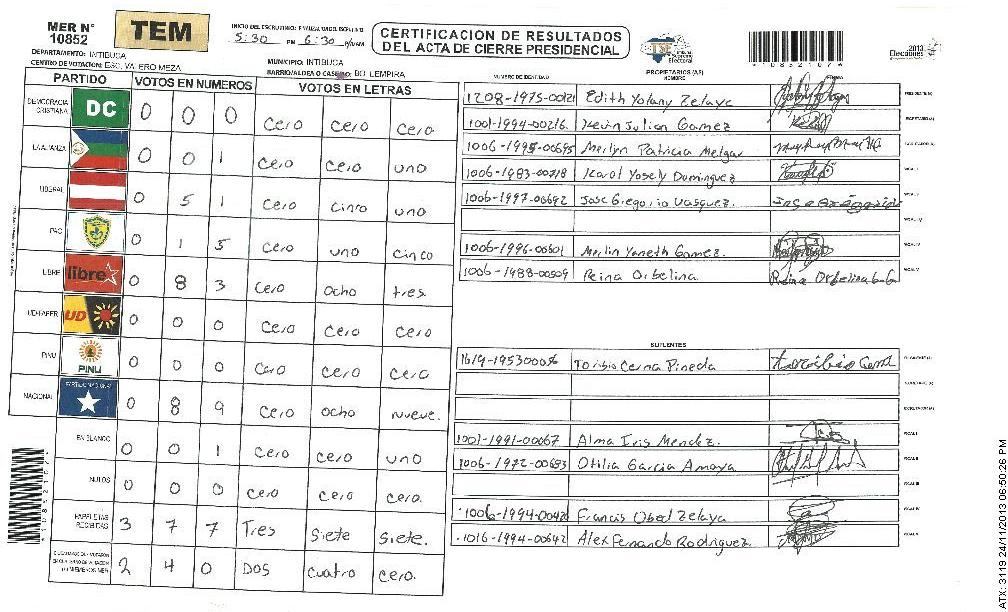 MER N° 10852
TEM
5:30 PM 6:30
CERTIFICACION DE RESULTADOS
DEL ACTA DE CIERRE PRESIDENCIAL
TSE Tribunal Supremo Electoral
2013 Elecciones
DEPARTAMENTO: INTIBUCA
MUNICIPIO: INTIBUCA
CENTRO DE VOTACION: ESC. VALERO MEZA
BARRIO/ALDEA O CASERIO: BO. LEMPIRA
PARTIDO VOTOS EN NUMEROS VOTOS EN LETRAS
DEMOCRACIA CRISTIANA DC 0 0 0 Cero Cero Cero
LA ALIANZA 0 0 1 Cero Cero uno
LIBERAL 0 5 1 Cero Cinco uno
PAC 0 1 5 Cero uno cinco
LIBRE libre 0 8 3 Cero Ocho tres.
UD-FAPER UD 0 0 0 Cero Cero Cero
PINU PINU 0 0 0 Cero Cero Cero
NACIONAL PARTIDO NACIONAL 0 8 9 Cero ocho nueve.
EN BLANCO 0 0 1 Cero Cero uno
NULOS 0 0 0 Cero Cero Cero.
PAPELETAS RECIBIDAS 3 7 7 Tres Siete Siete.
2 4 0 DOS cuatro Cero.
NUMERO DE IDENTIDAD PROPIETARIOS (AS) NOMBRE FIRMA
1208-1975-00121 Edith Yolany Zelaye
1001-1994-00216. Kevin Julian Gomez
1006-1995-00695 Merlyn Patricia Melgar
1006-1983-00718 Karol Yosely Dominguez
1006-1997-00692 Jose Gregorio Vasquez.
1006-1996-00501 Merlin Yaneth Gomez.
1006-1988-00509 Reina Orbelina
SUPLENTES
1619-195300056 Toribio Cerna Pineda
1001-1991-00067 Alma Iris Mendez.
1006-1972-00683 Otilia Garcia Amaya
1006-1994-00420 Francis Obed Zelaya
1016-1994-00642 Alex Fernando Rodriguez
ATX: 3119 24/11/2013 06:50:26 PM